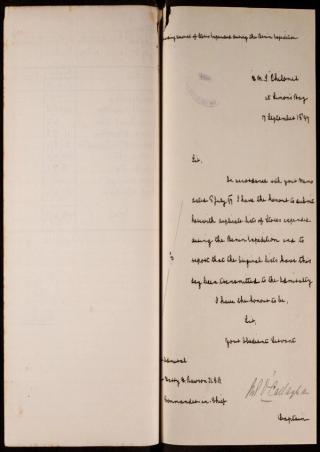 Record of Stores Expended during the Benin Expedition
H.M.S "Philomel"
at Simon's Bay
7 September 1897
Sir,
In accordance with your Memo
dated 8 July 97 I have the honour to submit
herewith duplicate lists of Stores expended
during the Benin Expedition and to
report that the original lists have this
day been transmitted to the Admiralty
I have the honour to be,
Sir,
Your Obedient Servant
Admiral
Harry H. Rawson K.C.B
Commander in Chief
M P O'Callaghan
Captain